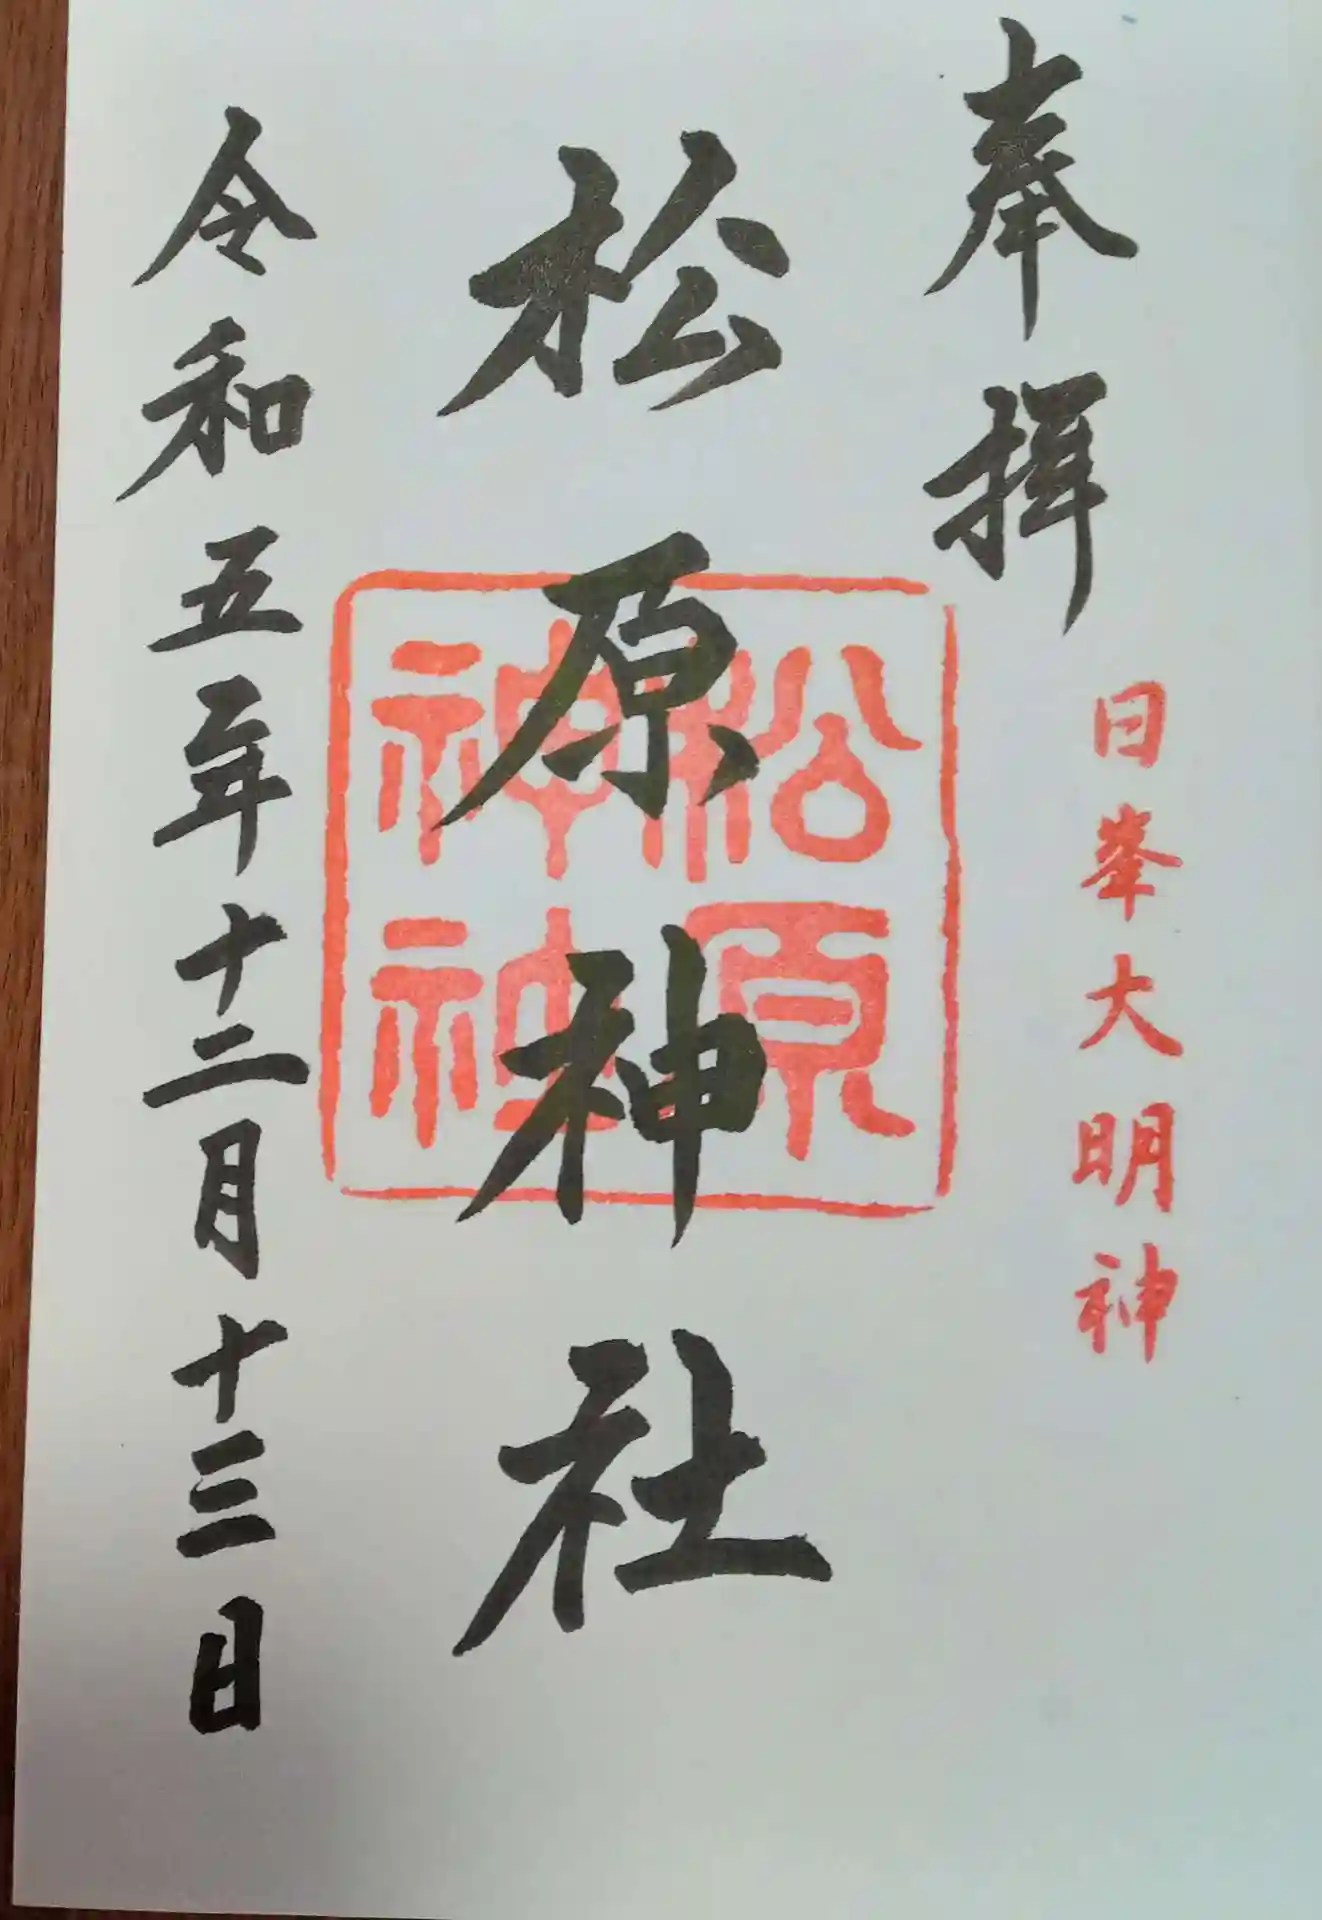 奉拝
日峯大明神
松原神社
松原
神社
令和五年十二月十三日